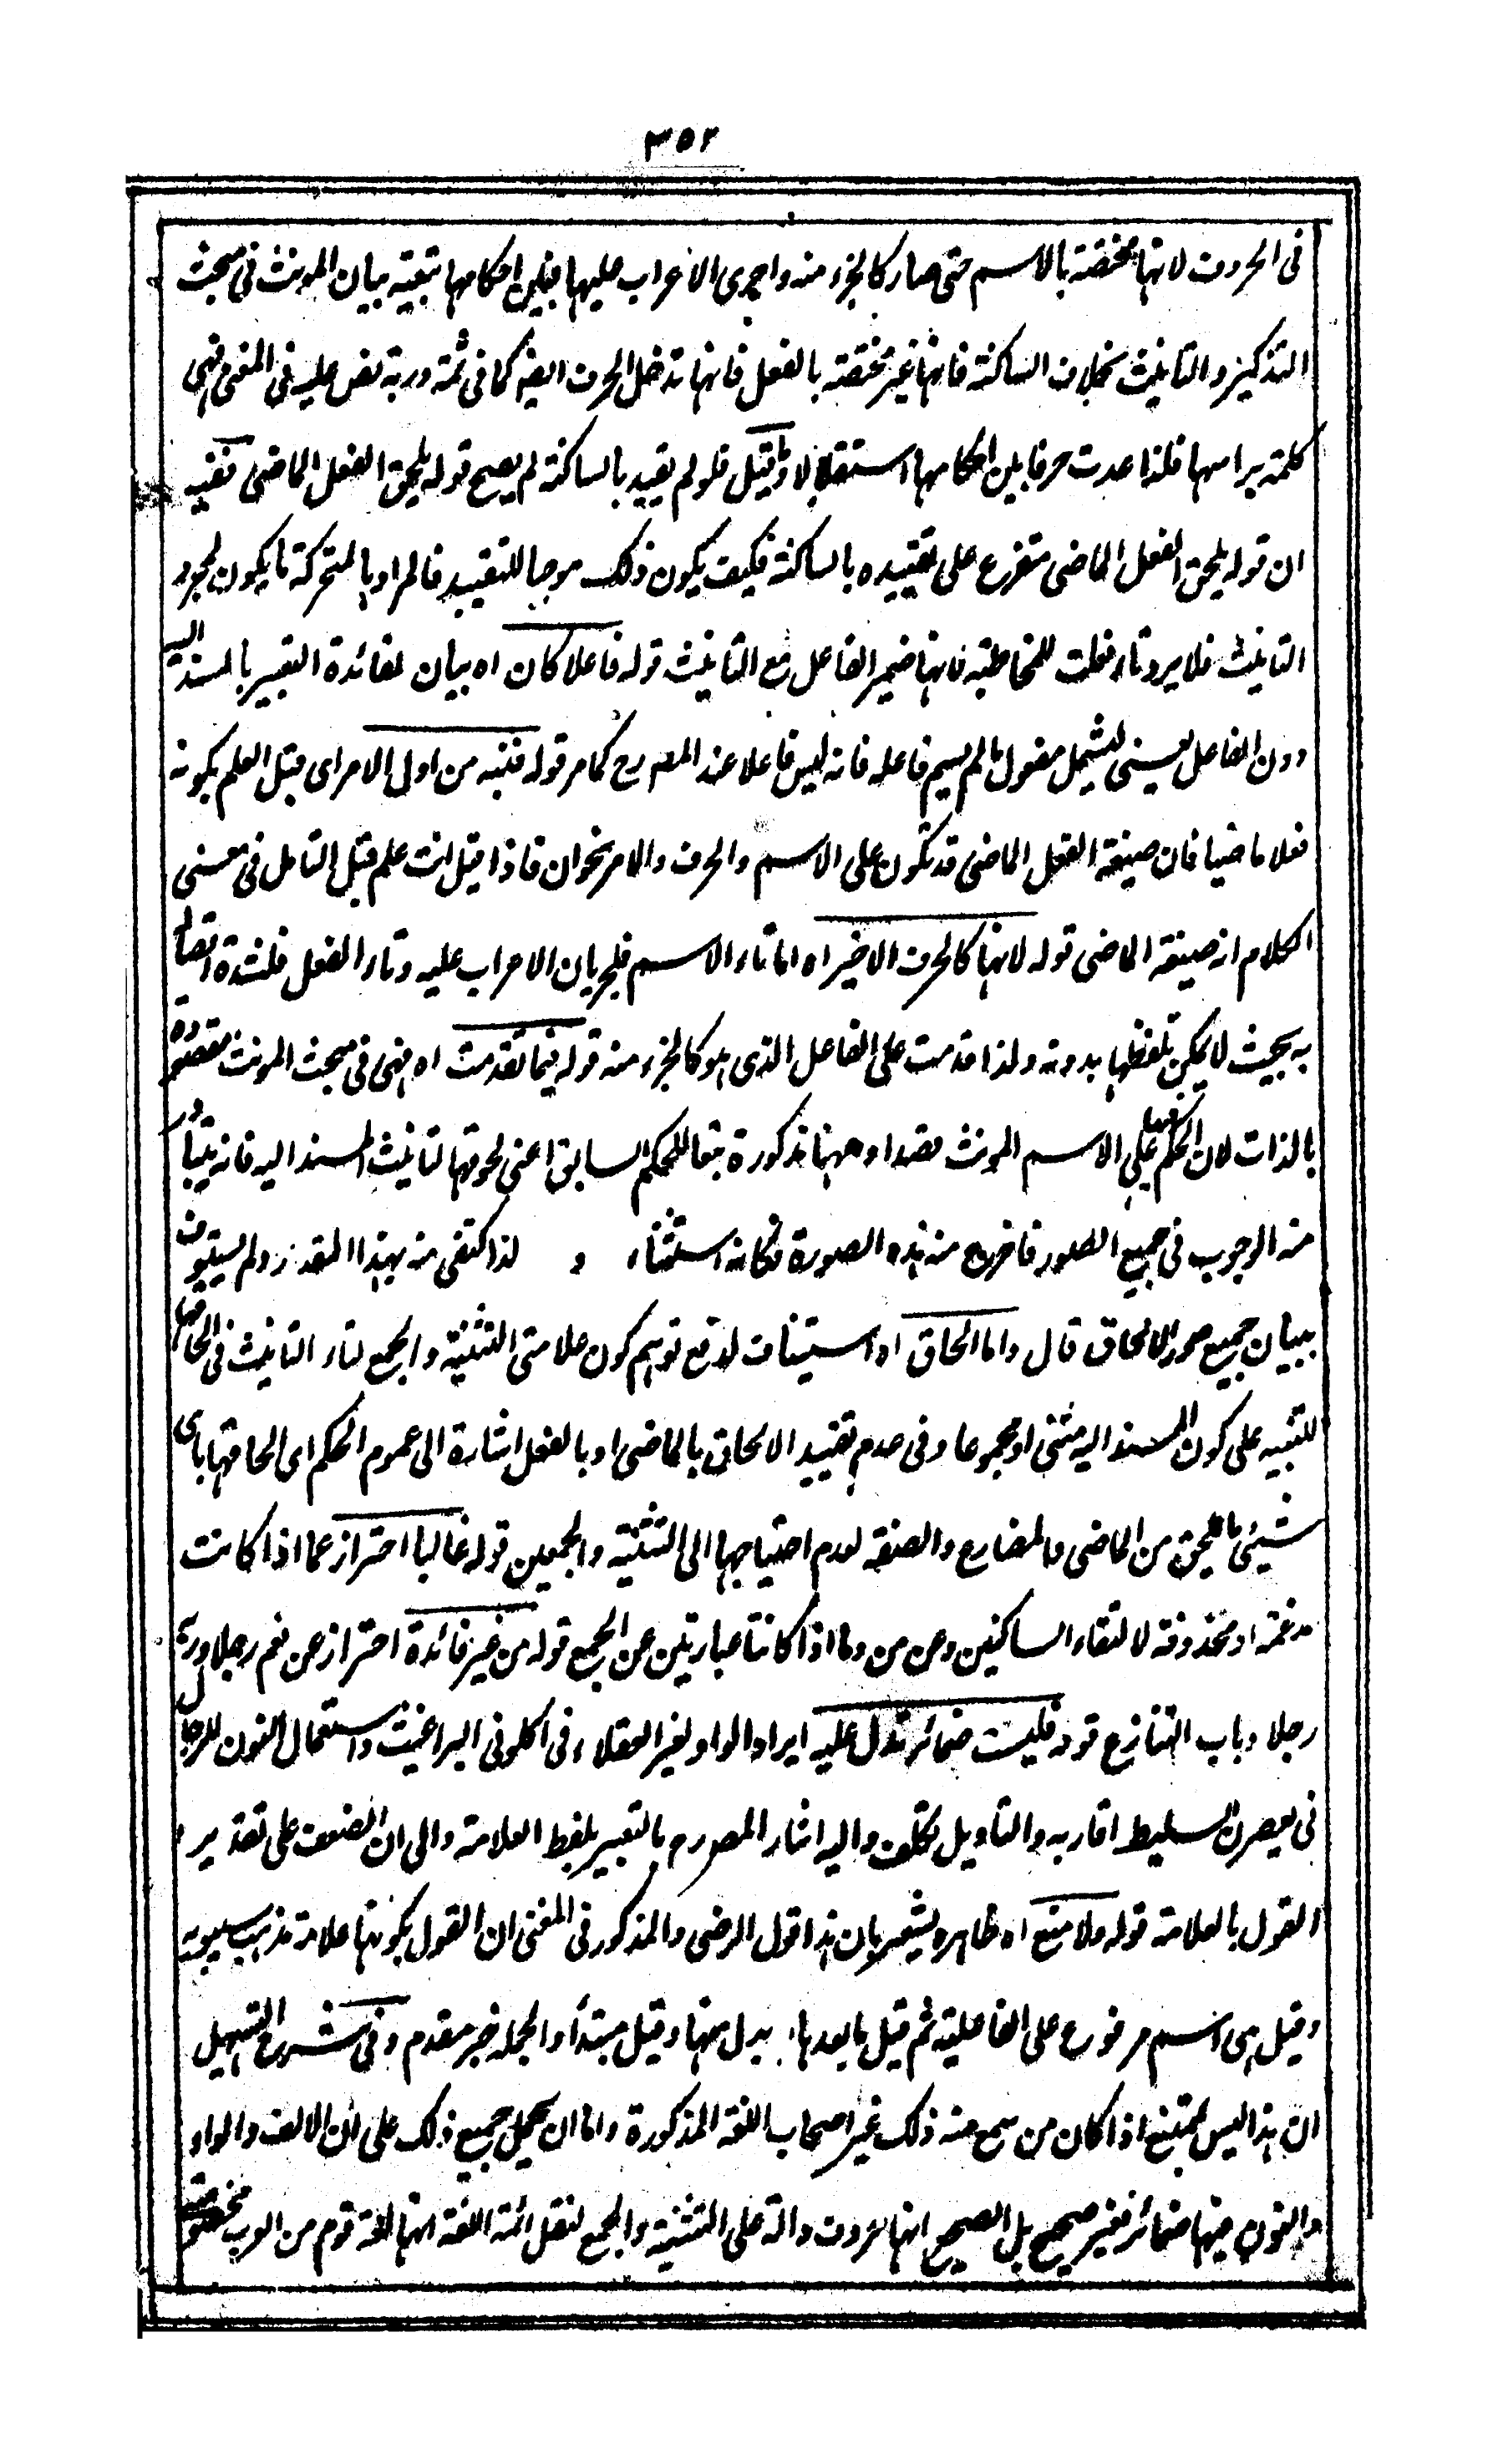 ٣٥٢
فى الحروف لانها مختصة بالاسم حتى صار كالجزء منه واجرى الاعراب عليها فبين احكامها بتبعية بيان المونث فى مبحث
التذكير والتانيث بخلاف الساكنة فانها غير مختصة بالفعل فانها تدخل الحرف ايضا كما فى ثمة وربة نص عليه فى المغنى فهى
كلمة براسها فلذا عدت حرفا بين احكامها استقلالا وقيل فلو لم يقيد بالساكنة لم يصح قوله يلحق الفعل الماضى ففيه
ان قوله يلحق الفعل الماضى متفرع على تقييده بالساكنة فكيف يكون ذلك موجبا للتقييد فالمراد بالمتحركة ما يكون لمجرد
التانيث فلا يرد تاء فعلت للمخاطبة فانها ضمير الفاعل مع التانيث قوله فاعلا كان اه بيان لفائدة التعبير بالمسند اليه
دون الفاعل يعنى ليشمل مفعول ما لم يسم فاعله فانه ليس فاعلا عند المصـ رح كما مر قوله فنبه من اول الامر اى قبل العلم بكونه
فعلا ماضيا فان صيغة الفعل الماضى قد تكون على الاسم والحرف والامر نحو ان فاذا قيل انت علم قبل التامل فى معنى
الكلام انه صيغة الماضى قوله لانها كالحرف الاخير اه اما تاء الاسم فلجريان الاعراب عليه وتاء الفعل فلشدة اتصالها
به بحيث لا يمكن تلفظها بدونه ولذا قدمت على الفاعل الذى هو كالجزء منه قوله فيما تقدمت اه فهى فى مبحث المونث مقصودة
بالذات لان الحكم فيها على الاسم المونث قصدا وههنا مذكورة تبعا للحكم السابق اعنى لحوقها لتانيث المسند اليه فانه يتبادر
منه الوجوب فى جميع الصور فاخرج منه هذه الصورة فكانه استثناء و لذا كتفى منه بهذا المقدار ولم يستوف
ببيان جميع صور الالحاق قال واما الحاق اه استيناف لدفع توهم كون علامتى التثنية والجمع لتاء التانيث فى الحاقها
للتنبيه على كون المسند اليه مثنى او مجموعا وفى عدم تقييد الالحاق بالماضى او بالفعل اشارة الى عموم الحكم اى الحاقها باى
شيئى ما يلحق من الماضى والمضارع والصفة لعدم احتياجها الى التثنية والجمعين قوله غالبا احتراز عما اذا كانت
مدغمة او محذوفة لالتقاء الساكنين وعن من وما اذا كانتا عبارتين عن الجمع قوله من غير فائدة احتراز عن نعم رجلا وربه
رجلا وباب التنازع قوله فليست ضمائر تدل عليه ايراد الواو لغير العقلاء فى اكلونى البراغيث واستعمال النون للرجال
فى يعصرن السليط اقاربه والتاويل تكلف واليه اشار المصـ رح بالتعبير بلفظ العلامة والى ان الضعف على تقدير
القول بالعلامة قوله ولا منع اه ظاهره يشعر بان هذا قول الرضى والمذكور فى المغنى ان القول بكونها علامة مذهب سيبويه
وقيل هى اسم مرفوع على الفاعلية ثم قيل ما بعدها بدل منها وقيل مبتدأ والجملة خبر مقدم وفى شرح التسهيل
ان هذا ليس بممتنع اذا كان من سمع منه ذلك غير اصحاب اللغة المذكورة واما ان يحمل جميع ذلك على ان الالف والواو
والنون فيها ضمائر فغير صحيح بل الصحيح انها حروف دالة على التثنية والجمع لنقل ائمة اللغة انها لغة قوم من العرب مخصوصة